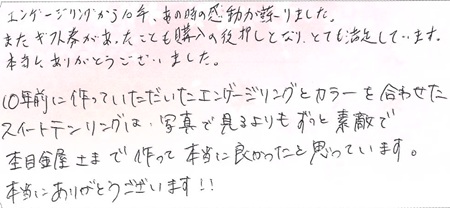 エンゲージリングから10年、あの時の感動が蘇りました。
またギフト券があったことも購入の後押しとなり、とても満足しています。
本当にありがとうございました。
10年前に作っていただいたエンゲージリングとカラーを合わせた
スイートテンリングは、写真で見るよりもずっと素敵で
杢目金屋さまで作って本当に良かったと思っています。
本当にありがとうございます!!